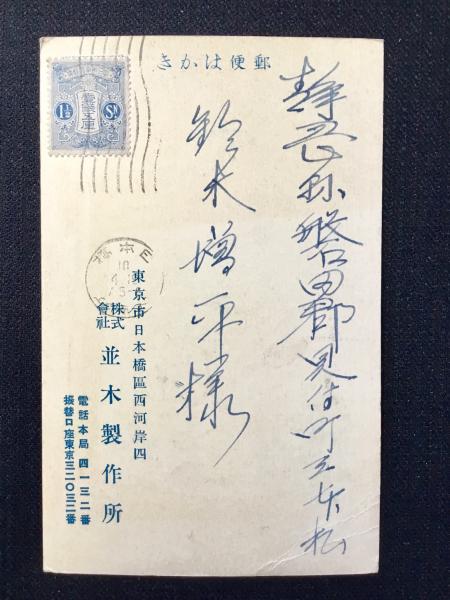 郵便はかき
1½ Sn
静岡縣磐田郡見付町
鈴木増平様
東京市日本橋區西河岸四
株式會社 並木製作所
電話本局 四一三二番
振替口座東京三二〇三二番